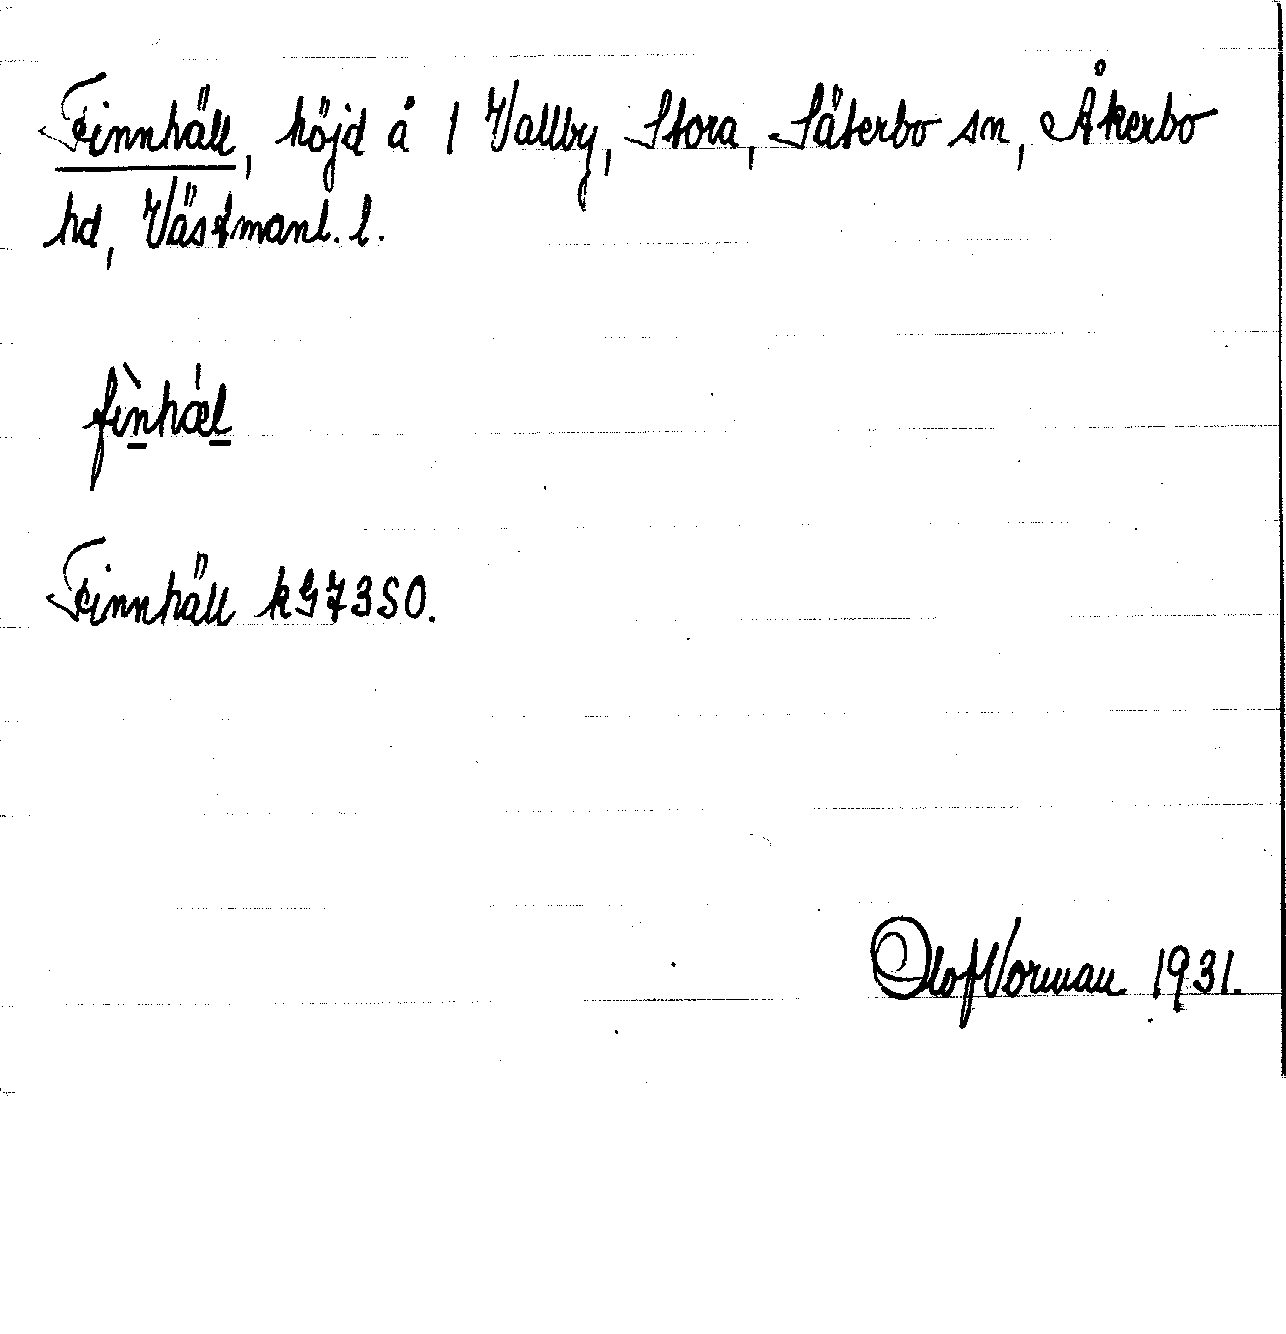 Finnhäll, höjd å 1 Vallby, Stora, Säterbo sn, Åkerbo
hd, Västmanl. l.
fìnhæl
Finnhäll kG73SO.
Olof Vorman 1931.